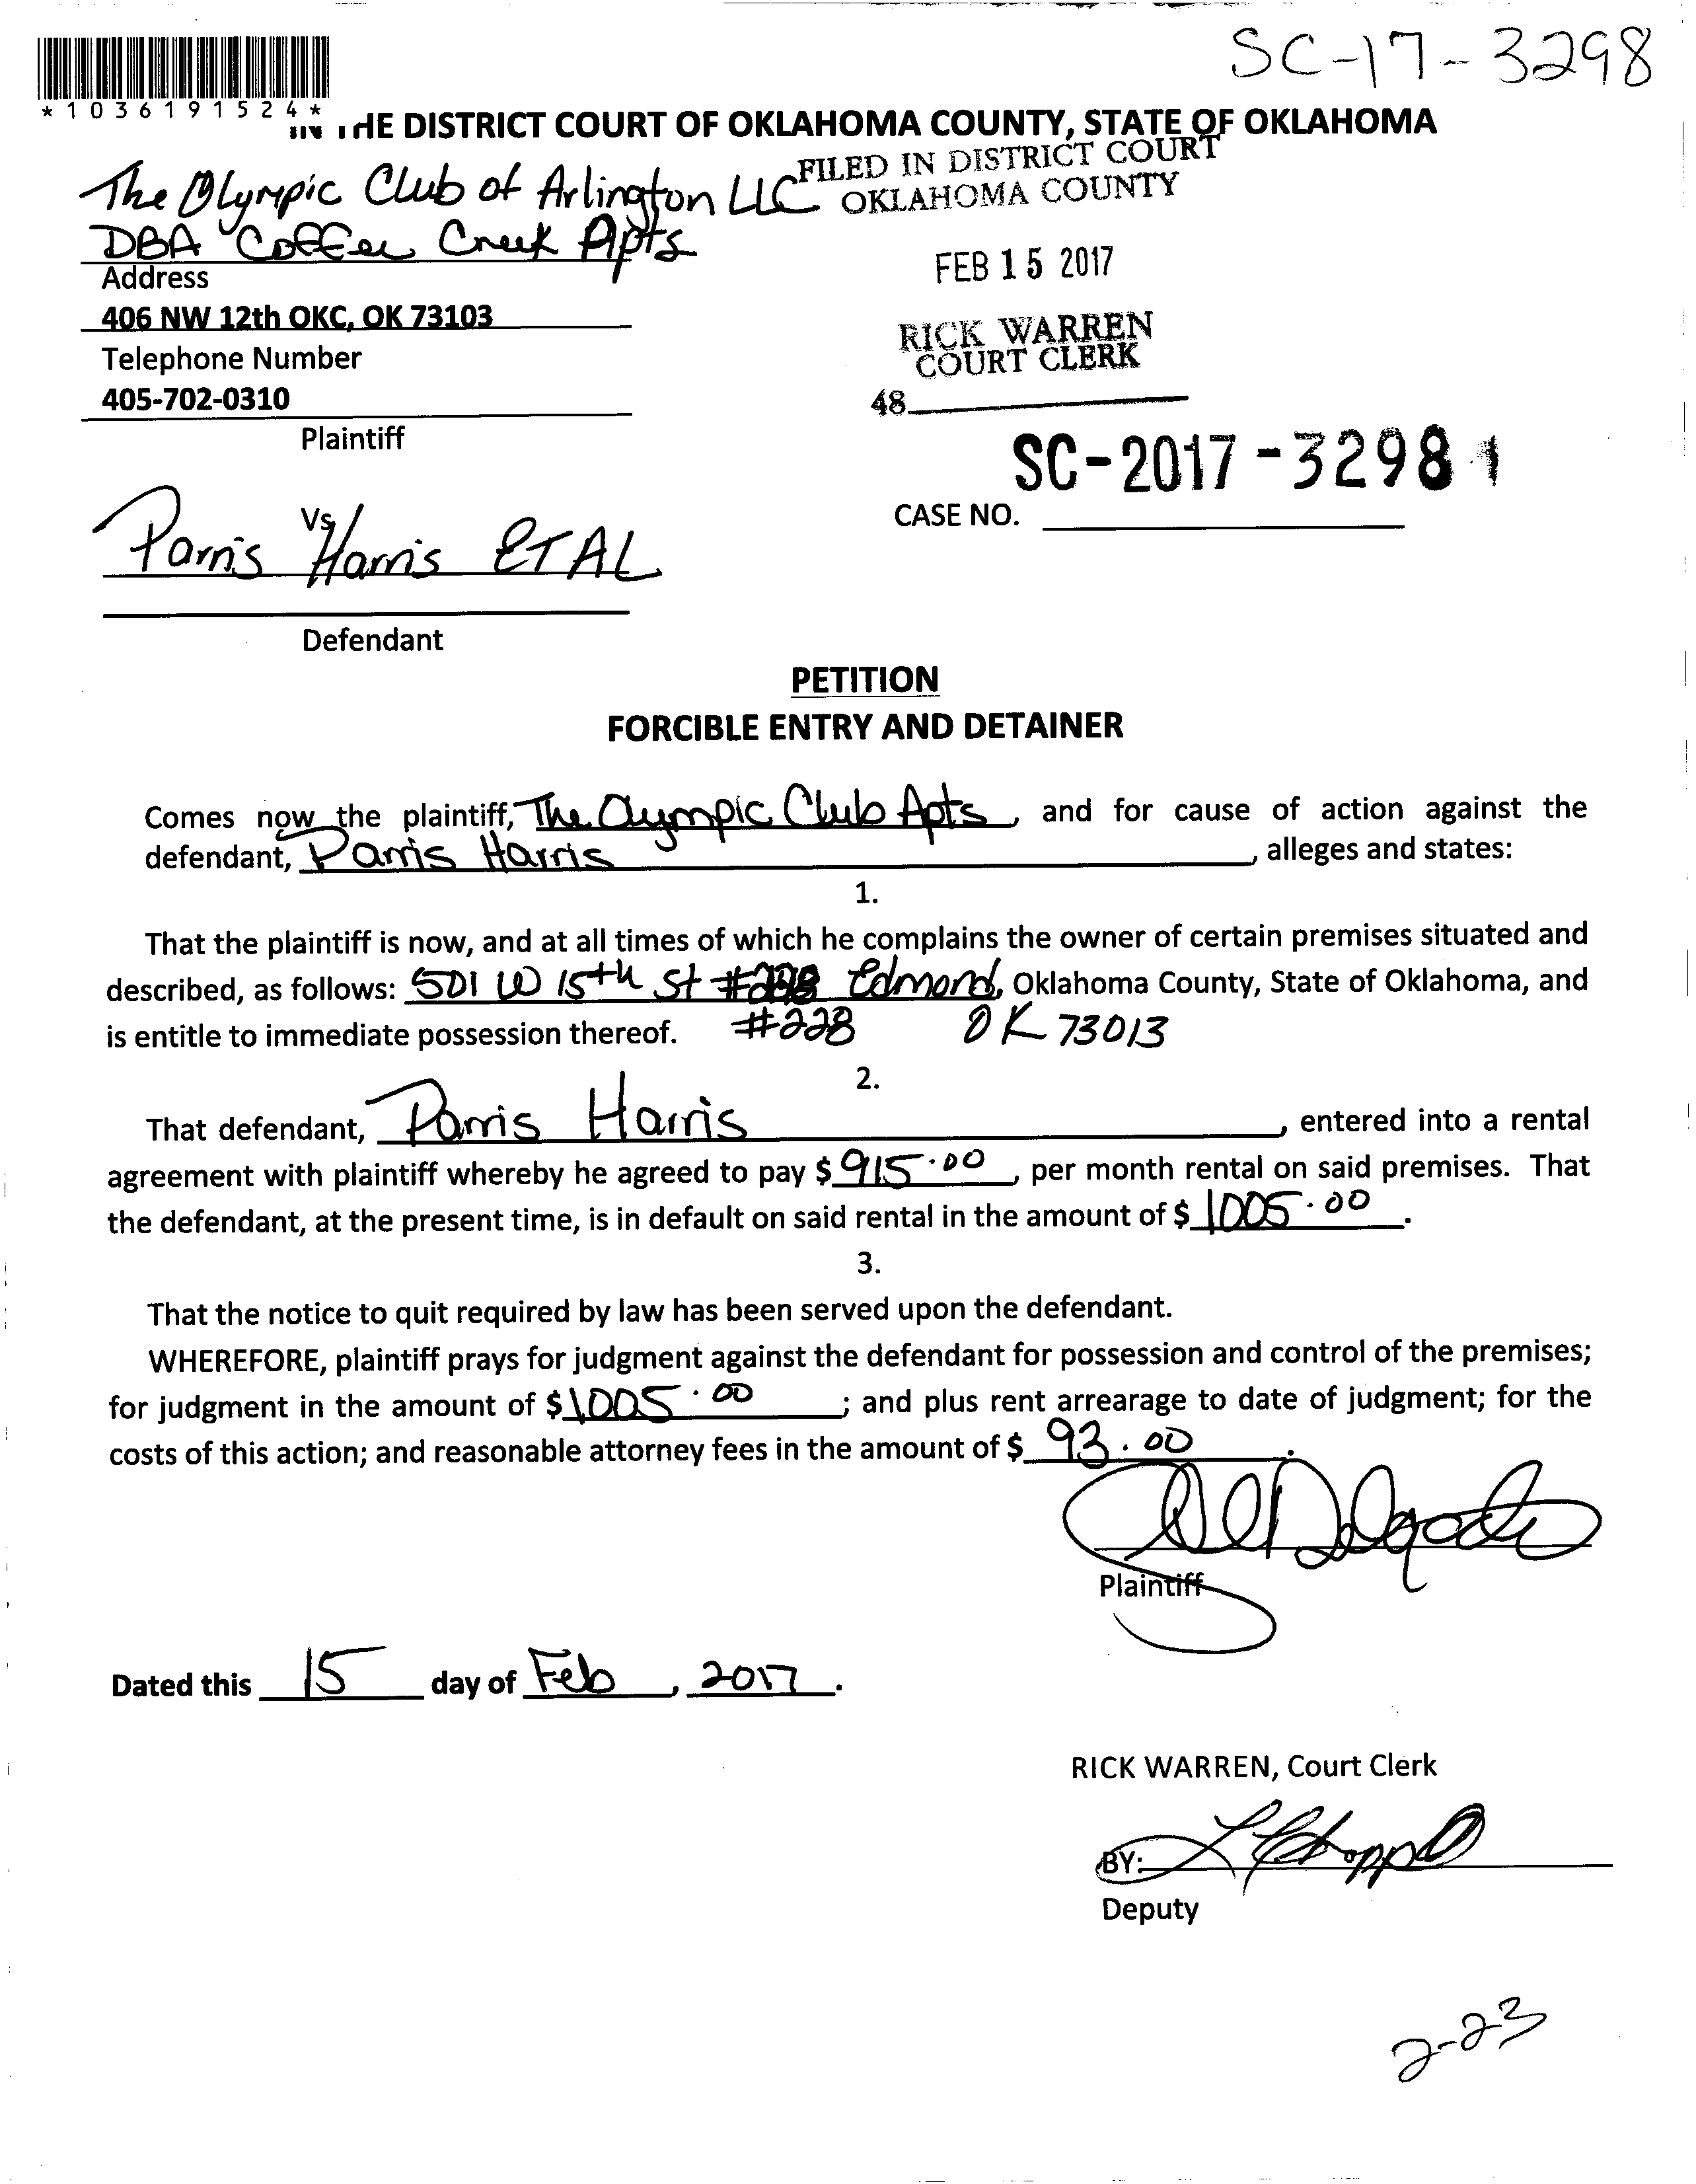 SC-17-3298
*1036191524*
IN THE DISTRICT COURT OF OKLAHOMA COUNTY, STATE OF OKLAHOMA
The Olympic Club of Arlington LLC
DBA Coffee Creek Apts
FILED IN DISTRICT COURT
OKLAHOMA COUNTY
Address
FEB 15 2017
406 NW 12th OKC, OK 73103
RICK WARREN
COURT CLERK
Telephone Number
405-702-0310
48
Plaintiff
SC-2017-3298
CASE NO.
Vs
Parris Harris ETAL
Defendant
PETITION
FORCIBLE ENTRY AND DETAINER
Comes now the plaintiff, The Olympic Club Apts, and for cause of action against the
defendant, Parris Harris, alleges and states:
1.
That the plaintiff is now, and at all times of which he complains the owner of certain premises situated and
described, as follows: 501 W 15th St # Edmond, Oklahoma County, State of Oklahoma, and
is entitle to immediate possession thereof. #228 OK 73013
2.
That defendant, Parris Harris, entered into a rental
agreement with plaintiff whereby he agreed to pay $ 915.00, per month rental on said premises. That
the defendant, at the present time, is in default on said rental in the amount of $ 1005.00.
3.
That the notice to quit required by law has been served upon the defendant.
WHEREFORE, plaintiff prays for judgment against the defendant for possession and control of the premises;
for judgment in the amount of $ 1005.00; and plus rent arrearage to date of judgment; for the
costs of this action; and reasonable attorney fees in the amount of $ 93.00.
Delgado
Plaintiff
Dated this 15 day of Feb, 2017.
RICK WARREN, Court Clerk
BY:
Deputy
2-23